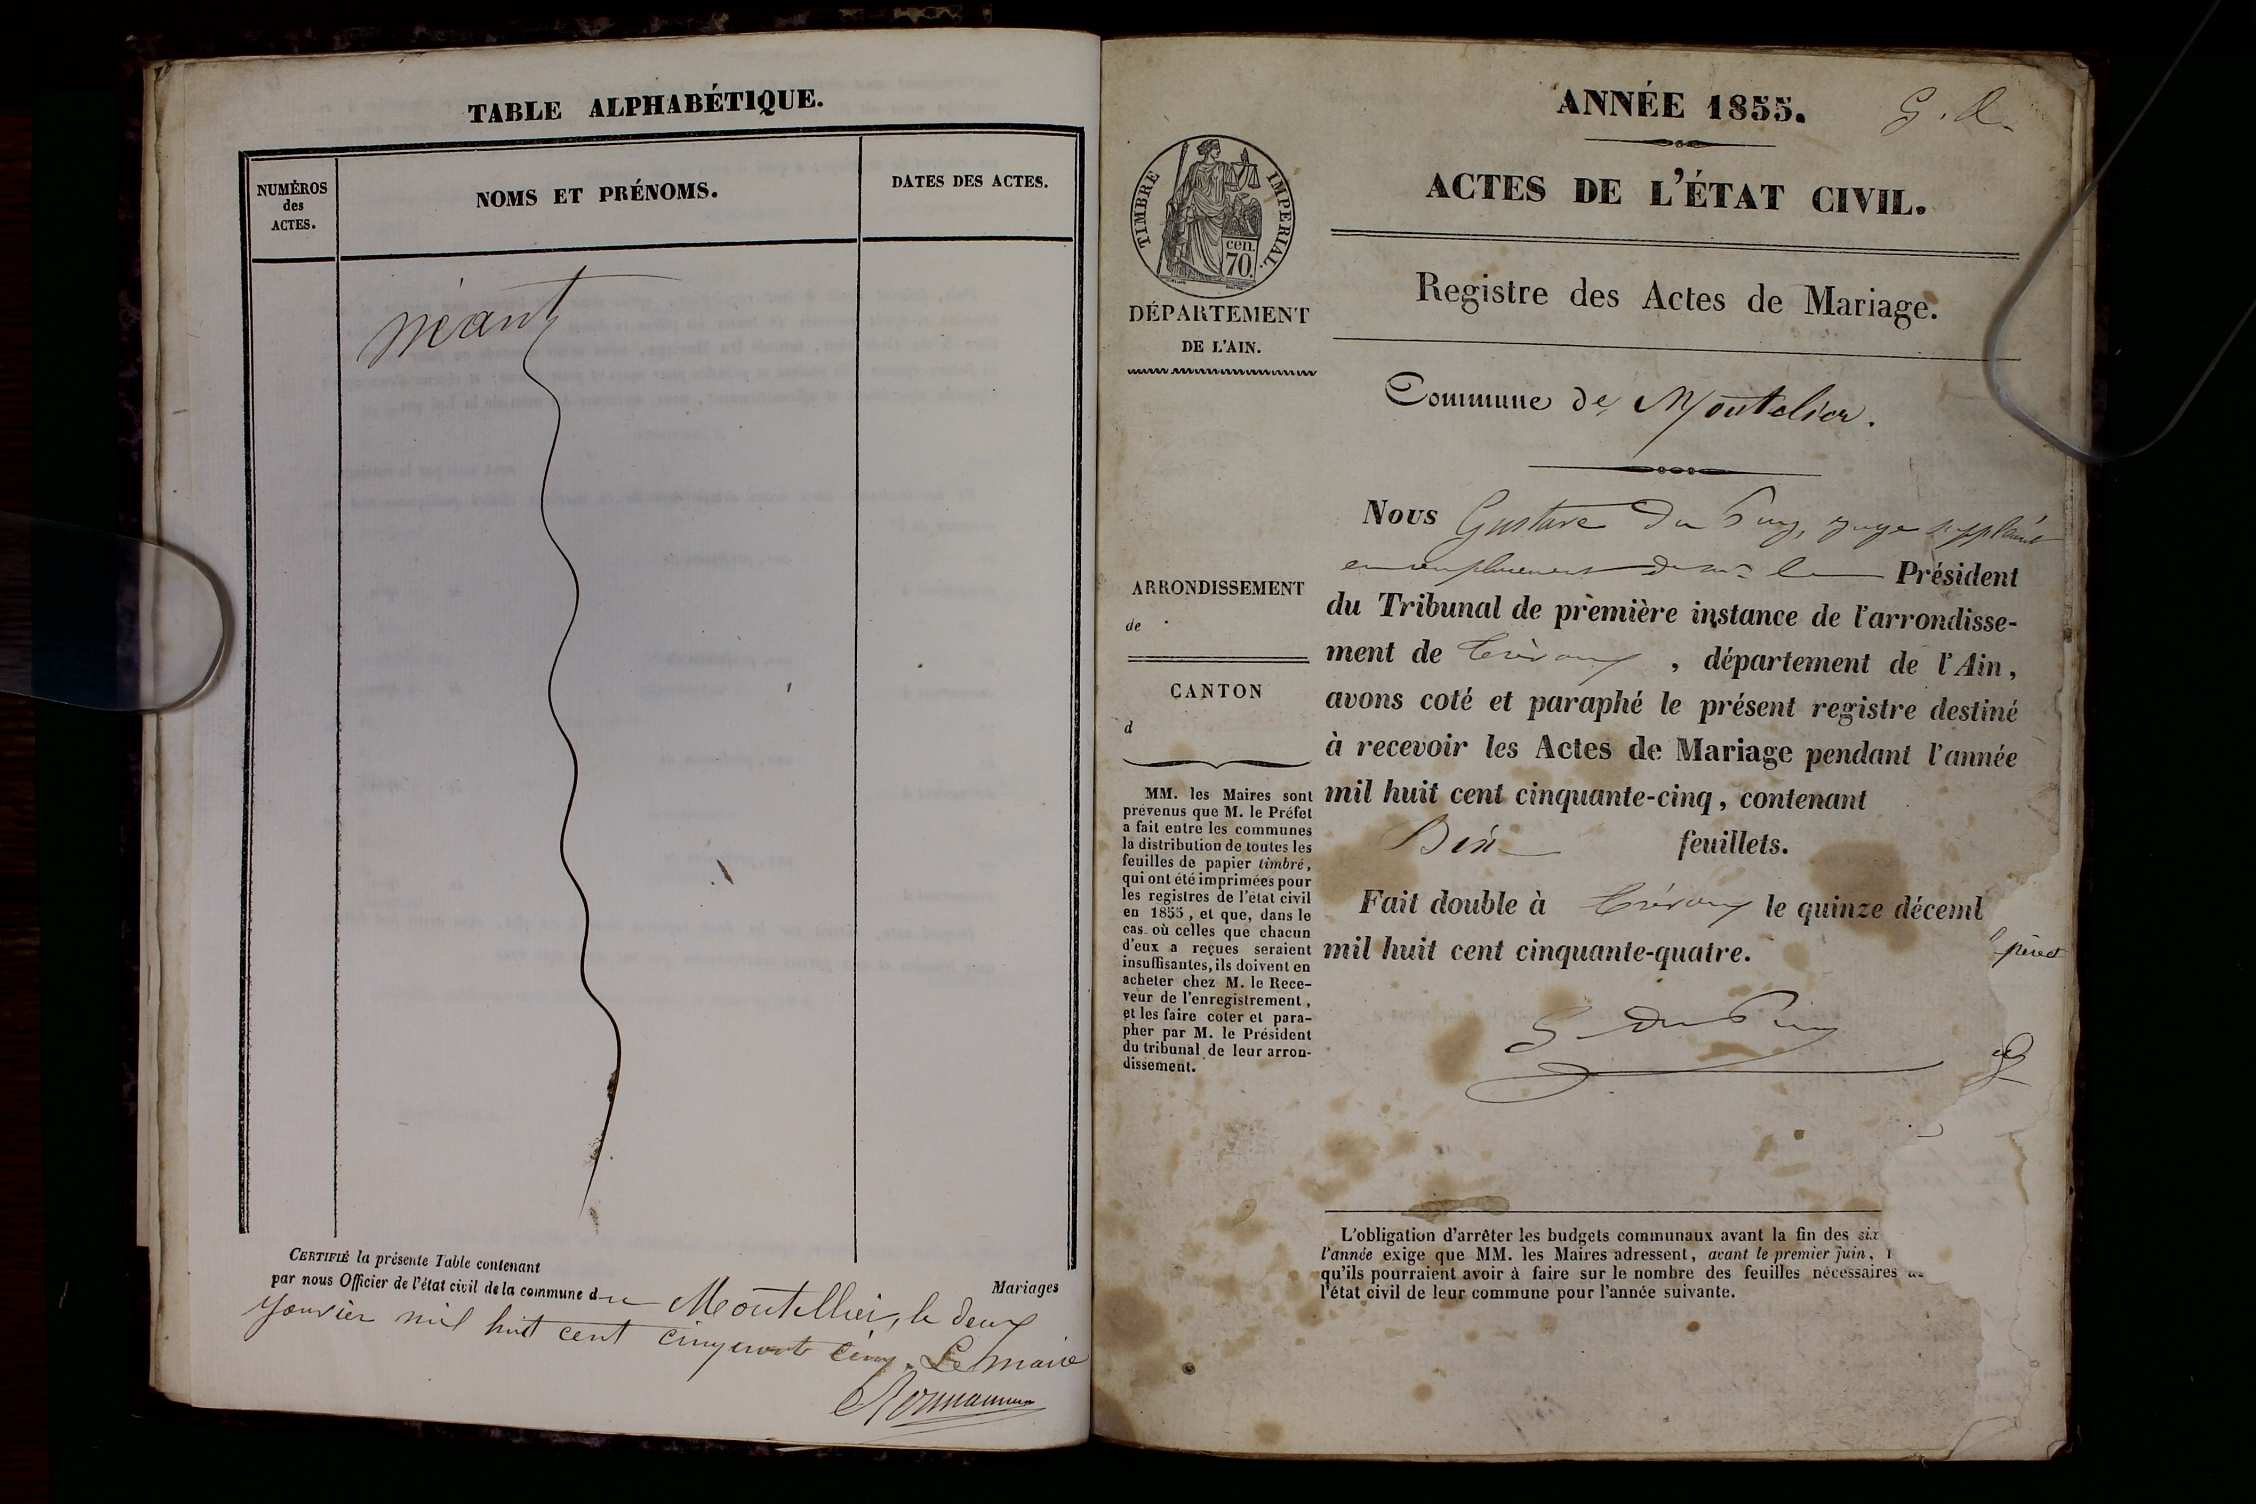 TABLE ALPHABÉTIQUE.
NUMÉROS
des
ACTES.
NOMS ET PRÉNOMS.
DATES DES ACTES.
néant
CERTIFIÉ la présente Table contenant
Mariages
par nous Officier de l'état civil de la commune d
Montellier, le deux
janvier mil huit cent cinquante cinq. Le maire
ANNÉE 1855.
ACTES DE L'ÉTAT CIVIL.
TIMBRE IMPERIAL.
cen.
70.
DÉPARTEMENT
DE L'AIN.
Registre des Actes de Mariage.
Commune de Montelier.
Nous Gustave Du Puy, juge suppléant
en remplacement de Mr le Président
ARRONDISSEMENT
de
CANTON
d
du Tribunal de première instance de l'arrondisse-
ment de Trévoux, département de l'Ain,
avons coté et paraphé le présent registre destiné
à recevoir les Actes de Mariage pendant l'année
mil huit cent cinquante-cinq, contenant
Dix feuillets.
Fait double à Trévoux le quinze décem
mil huit cent cinquante-quatre.
G Du Puy
MM. les Maires sont
prévenus que M. le Préfet
a fait entre les communes
la distribution de toutes les
feuilles de papier timbré,
qui ont été imprimées pour
les registres de l'état civil
en 1855, et que, dans le
cas où celles que chacun
d'eux a reçues seraient
insuffisantes, ils doivent en
acheter chez M. le Rece-
veur de l'enregistrement,
et les faire coter et para-
pher par M. le Président
du tribunal de leur arron-
dissement.
L'obligation d'arrêter les budgets communaux avant la fin des six
l'année exige que MM. les Maires adressent, avant le premier juin,
qu'ils pourraient avoir à faire sur le nombre des feuilles nécessaires
l'état civil de leur commune pour l'année suivante.